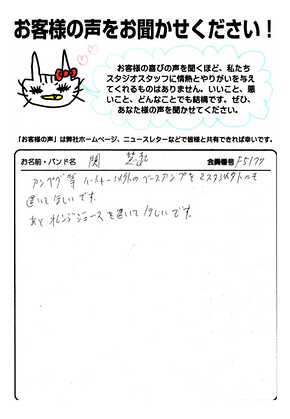 お客様の声をお聞かせください！
お客様の喜びの声を聞くほど、私たち
スタジオスタッフに情熱とやりがいを与え
てくれるものはありません。いいこと、悪
いこと、どんなことでも結構です。ぜひ、
あなた様の声を聞かせてください。
「お客様の声」は弊社ホームページ、ニュースレターなどで皆様と共有できれば幸いです。
お名前・バンド名 関 会員番号
アンペグ等 ハートキー以外のベースアンプを 2スタ以外にも
置いてほしいです。
あと オレンジジュースを置いてほしいです。